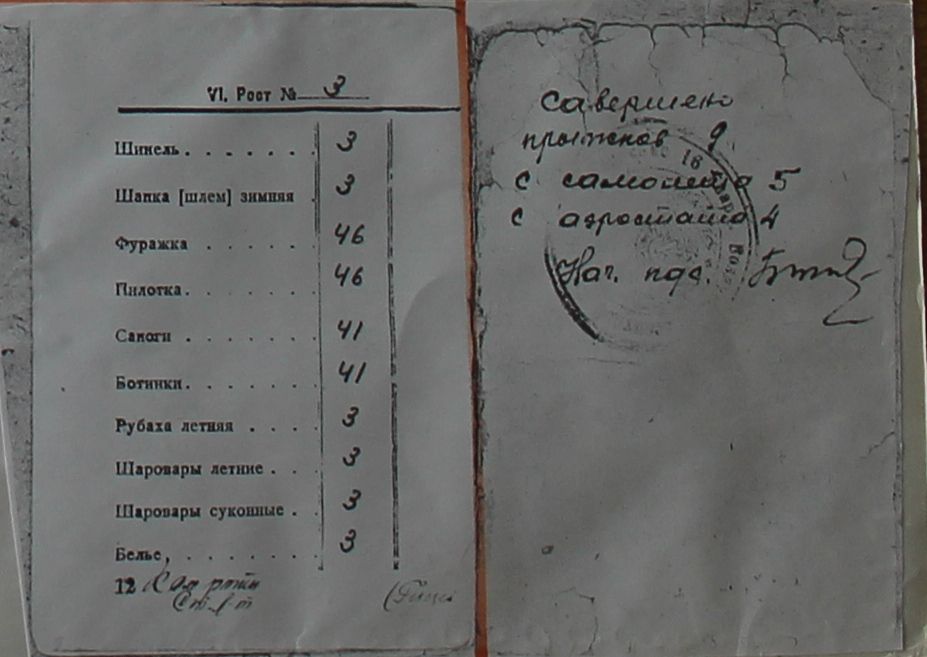 VI. Рост № 3
Шинель. . . . . . . 3
Шапка [шлем] зимняя . 3
Фуражка . . . . . . 46
Пилотка. . . . . . . 46
Сапоги . . . . . . . 41
Ботинки. . . . . . . 41
Рубаха летняя . . . . 3
Шаровары летние . . . 3
Шаровары суконные . . 3
Белье, . . . . . . . 3
12 Ком роты
савершено
прыжков 9
с самолета 5
с аэростата 4
Нач. пдс.
16